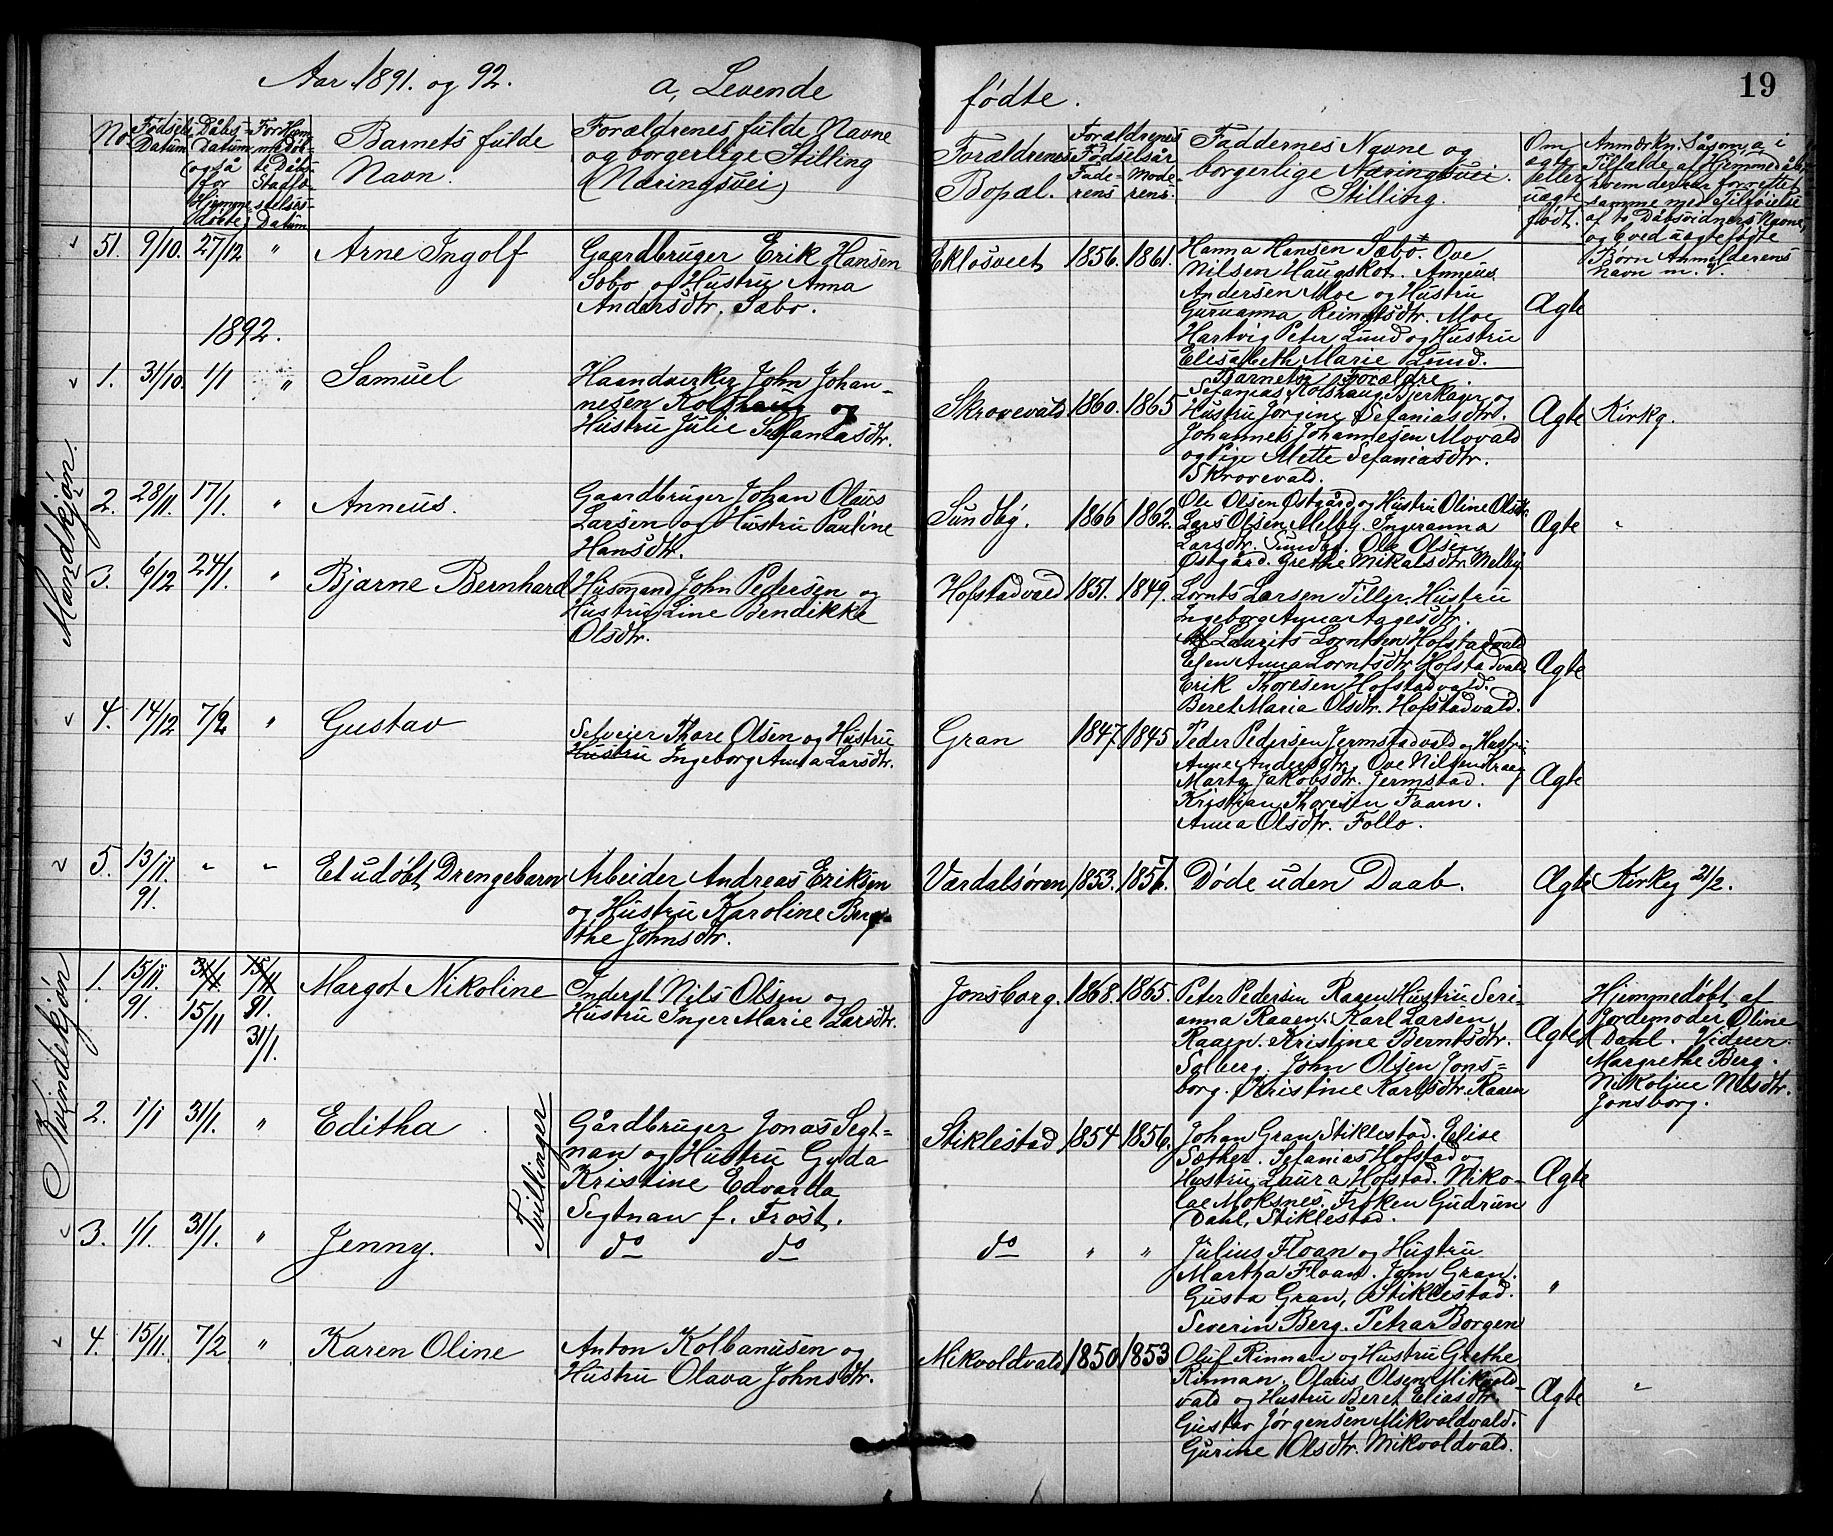 Aar 1891. og 92. a, Levende fødte. 19
No. Fødsels Datum Dåbs- Datum (også for Hjemme døbte)
Barnets fulde Navn.
Forældrenes fulde Navne
og borgerlige Stilling
(Næringsvei)
Forældrenes Bopæl.
Forældrenes Fødselsår
Fade- rens Mode- rens.
Faddernes Navne og
borgerlige Næringsvei.
Stilling.
Om ægte eller uægte født.
Anmærkn. Såsom, a, i
Tilfælde af Hjemmedåb,
hvem der har forrettet
samme med Tilføielse
af to Dåbsvidners Navne,
og b, ved uægte fødte
Børn Anmelderens
Navn m. v.
Mandkjøn.
51. 9/10. 27/12 " Arne Ingolf
Gaardbruger Erik Hansen
Sobo og Hustru Anna
Andersdtr. Sabo.
Eklosveet 1856. 1861.
Hanna Hansen Sabo. Ove
Nilsen Haugskot. Anneus
Andersen Moe og Hustru
Guruanna Reinulsdtr. Moe
Hartvig Peter Lund og Hustru
Elisabeth Marie Lund.
Barnets Forældre.
Ægte
1892.
1. 31/10. 1/1 " Samuel
Haandverker John Johan-
nesen Kolshaug og
Hustru Julie Sefaniasdtr.
Skrovevald 1860. 1865
Sefanias Kolshaug Bjerkager og
Hustru Jørgine Sefaniasdtr.
Johannes Johannesen Movald
og Pige Mette Sefaniasdtr.
Skrovevald.
Ægte Kirkg.
2. 28/11. 17/1. " Anneus.
Gaardbruger Johan Olaus
Larsen og Hustru Pauline
Hansdtr.
Sundby. 1866 1862.
Ole Olsen Østgård og Hustru Oline Olsdtr.
Lars Olsen Melby. Ingeranna
Larsdtr. Sundby. Ole Olsen
Østgård. Grethe Mikalsdtr. Melby
Ægte "
3. 6/12 24/1. " Bjarne Bernhard
Husmand John Pedersen og
Hustru Line Bendikke
Olsdtr.
Hofstadvald 1851. 1849.
Lornts Larsen Tiller. Hustru
Ingeborg Anna Aagesdtr.
Laurits Lorntsen Hofstadvald
Elen Anna Lorntsdtr. Hofstadvald
Erik Thoresen Hofstadvald.
Beret Maria Olsdtr. Hofstadvald.
Ægte
4. 14/12 7/2 " Gustav
Selveier Thore Olsen og Hustru
Hustru Ingeborg Anna Larsdtr.
Gran 1847. 1845
Peder Pedersen Jermstadvald og Hustru
Anne Andersdtr. Ove Nilsen Kraag
Marta Jakobsdtr. Jermstad.
Kristian Thoresen Faarn.
Anna Olsdtr. Follo.
Ægte
5. 13/11. 91. " " Et udøbt Drengebarn
Arbeider Andreas Eriksen
og Hustru Karoline Bergi-
the Johnsdtr.
Værdalsøren 1853. 1857.
Døde uden Daab.
Ægte Kirkg 21/2.
Kvindekjøn
1. 15/11 91. 31/1 15/11 15/11 91. 31/1. Margot Nikoline
Inderst Nils Olsen og
Hustru Inger Marie Larsdtr.
Jonsborg. 1868. 1865.
Peter Pedersen Raaen Hustru Seri-
anna Raaen. Karl Larsen
Raaen. Kristine Berntsdtr.
Solberg. John Olsen Jons=
borg. Kristine Karlsdtr. Raaen
Ægte
Hjemmedøbt af
Jordemoder Oline
Dahl. Vidner.
Margrethe Berg.
Nikoline Nilsdtr.
Jonsborg.
2. 1/1 31/1. " Editha
Tvillinger
Gårdbruger Jonas Segt=
nan og Hustru Gyda
Kristine Edvarda
Segtnan f. Frost.
Stiklestad 1854 1856.
Johan Gran Stiklestad. Elise
Sæther. Sefanias Hofstad og
Hustru Laura Hofstad. Niko-
lae Moksnes. Frøken Gudrun
Dahl, Stiklestad.
Ægte
3. 1/1. 31/1. " Jenny.
do do
do " "
Julius Floan og Hustru
Martha Floan. John Gran.
Gusta Gran, Stiklestad.
Severin Berg. Petra Borgen
"
4. 15/11. 7/2 " Karen Oline
Anton Kolbanusen og
Hustru Olava Johnsdtr.
Mikvoldvald 1850 1853
Oluf Rinnan og Hustru Grethe
Rinnan. Olaus Olsen Mikvold-
vald og Hustru Beret Eliasdtr.
Gustav Jørgensen Mikvoldvald.
Gurine Olsdtr. Mikvoldvald.
Ægte "